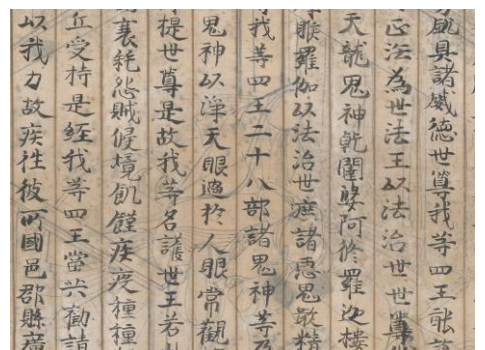 具諸威德世尊我等四王能說
正法為世法王以法治世世尊
天龍鬼神乾闥婆阿修羅迦樓
睺羅伽以法治世遮諸惡鬼噉精
我等四王二十八部諸鬼神等及
鬼神以淨天眼過於人眼常觀
提世尊是故我等名護世王若
衰耗怨賊侵境飢饉疾疫種種
丘受持是經我等四王當共勸請
以我力故疾往彼所國邑郡縣廣